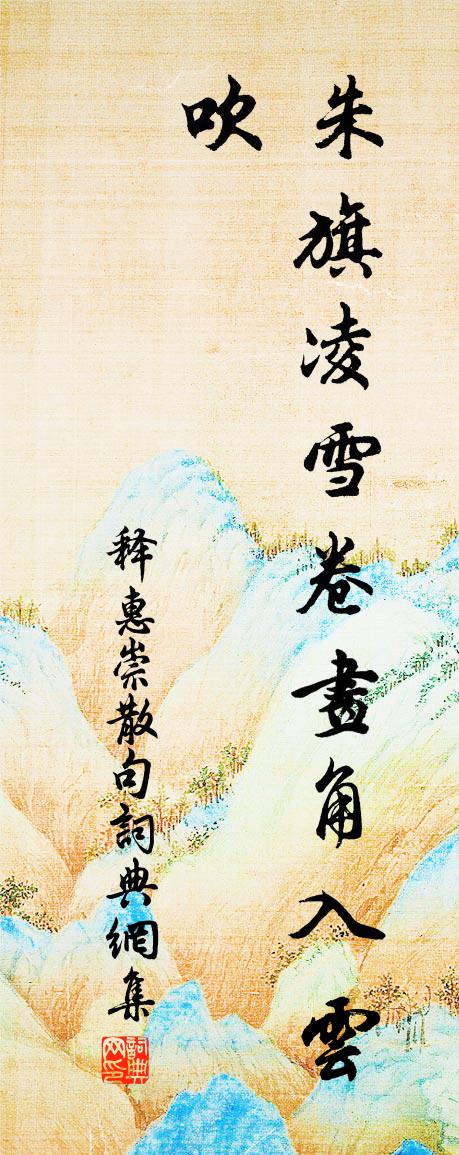 朱旗凌雪卷畫角入雲
吹
释惠崇散句詞典網集
詞典
网印